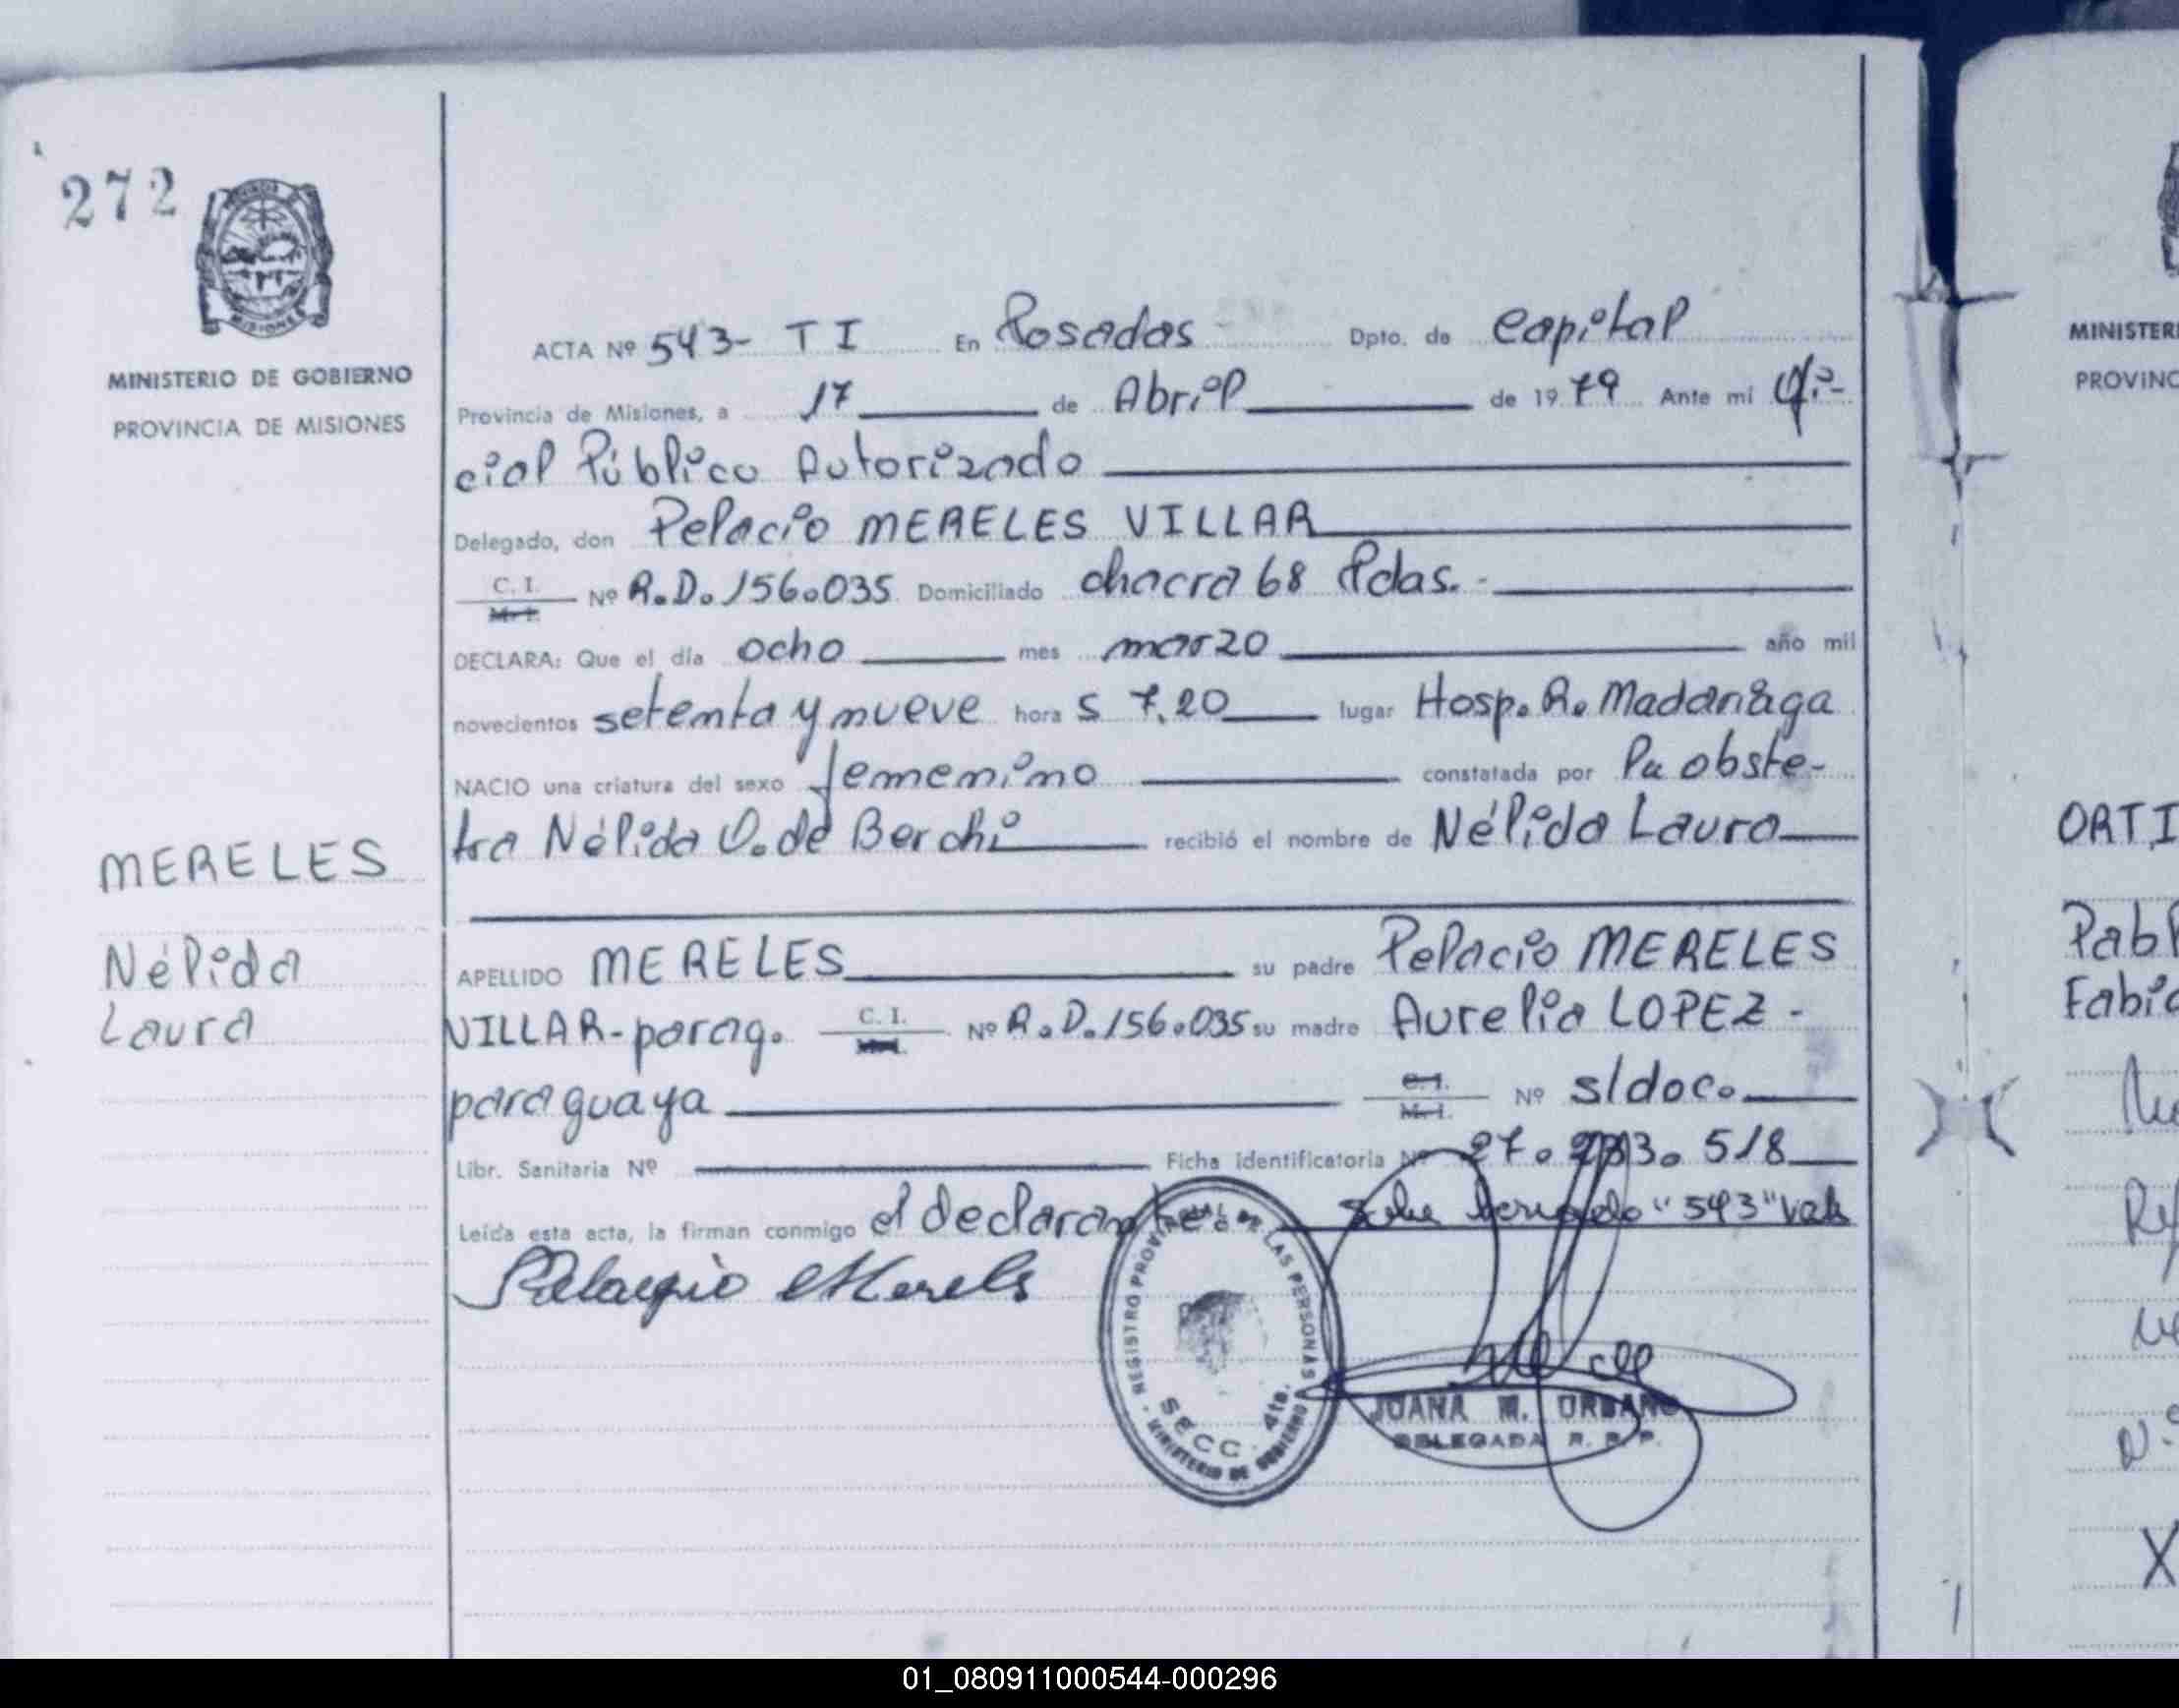 272
MISIONES
MINISTERIO DE GOBIERNO
PROVINCIA DE MISIONES
MERELES
Nélida
Laura
ACTA Nº 543- T I En Posadas Dpto. de Capital
Provincia de Misiones, a 17 de Abril de 1979 Ante mi Ofi-
cial Público Autorizado
Delegado, don Pelacio MERELES VILLAR
C. I. M. I. Nº R.D.156.035 Domiciliado chacra 68 Pdas.-
DECLARA: Que el día ocho mes marzo año mil
novecientos setenta y nueve hora s 7,20 lugar Hosp. R. Madariaga
NACIO una criatura del sexo femenino constatada por la obste-
tra Nélida O. de Berchi recibió el nombre de Nélida Laura
APELLIDO MERELES su padre Pelacio MERELES
VILLAR-parag. C. I. Nº R.D.156.035 su madre Aurelia LOPEZ -
paraguaya C. I. M. I. Nº s/doc.
Libr. Sanitaria Nº Ficha identificatoria Nº 27. 518
Leída esta acta, la firman conmigo el declarante. "543" vale
Pelagio Merels
REGISTRO PROVINCIAL DE LAS PERSONAS
SECC. 4ta.
MINISTERIO DE GOBIERNO
JUANA M. URBANO
DELEGADA R. P. P.
MINISTER
PROVINC
ORTI
Pabl
Fabi
X
01_080911000544-000296